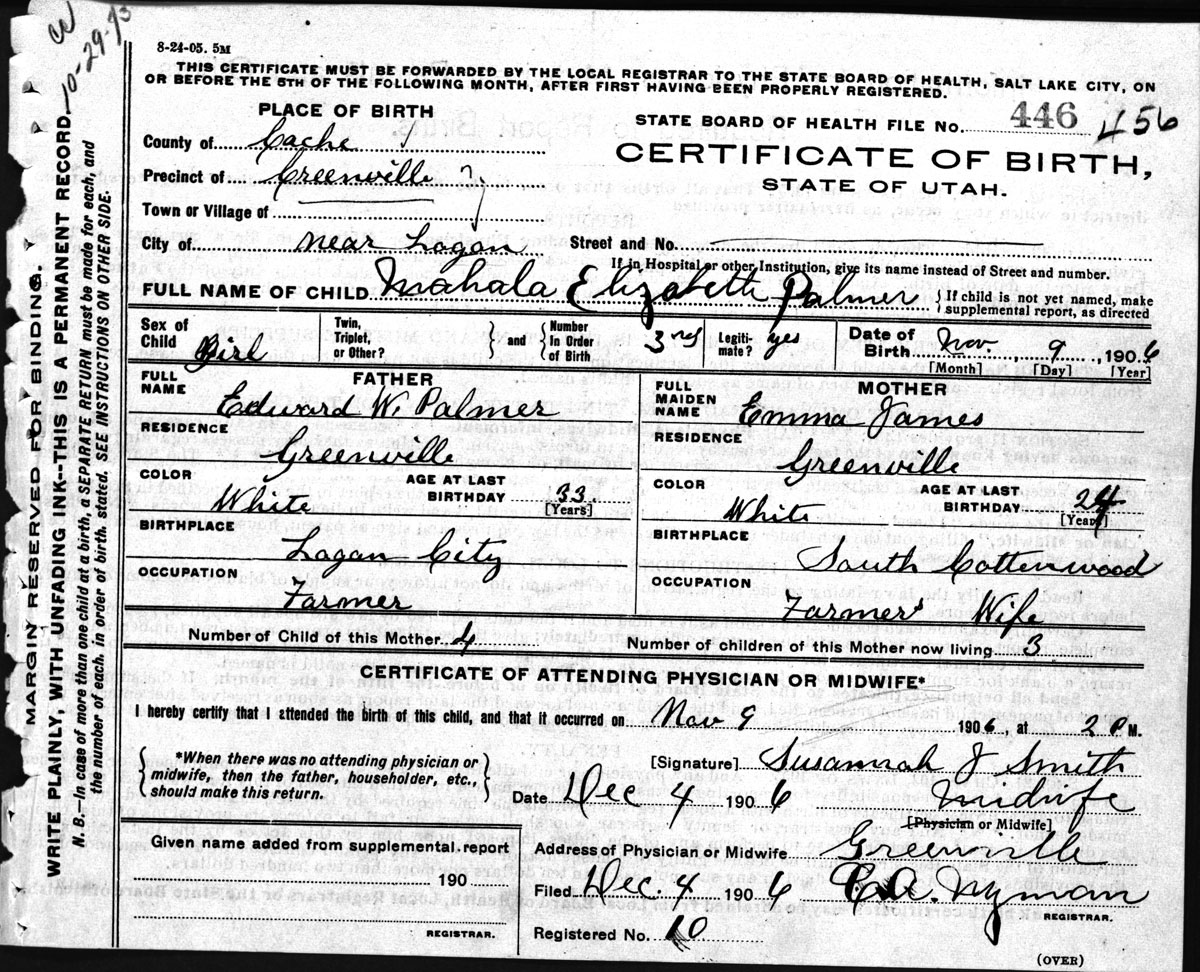 W
10-29-43
8-24-05. 5M
THIS CERTIFICATE MUST BE FORWARDED BY THE LOCAL REGISTRAR TO THE STATE BOARD OF HEALTH, SALT LAKE CITY, ON
OR BEFORE THE 5TH OF THE FOLLOWING MONTH, AFTER FIRST HAVING BEEN PROPERLY REGISTERED.
PLACE OF BIRTH
STATE BOARD OF HEALTH FILE No. 446 456
County of Cache
CERTIFICATE OF BIRTH,
Precinct of Greenville
STATE OF UTAH.
Town or Village of
City of near Logan Street and No.
If in Hospital or other Institution, give its name instead of Street and number.
FULL NAME OF CHILD Mahala Elizabeth Palmer {If child is not yet named, make supplemental report, as directed
Sex of Child Girl Twin, Triplet, or Other? } and { Number In Order of Birth 3rd Legiti-mate? yes Date of Birth Nov. 9, 1906
[Month] [Day] [Year]
FATHER
FULL NAME Edward W. Palmer
RESIDENCE
Greenville
COLOR White AGE AT LAST BIRTHDAY 33 [Years]
BIRTHPLACE
Logan City
OCCUPATION
Farmer
MOTHER
FULL MAIDEN NAME Emma James
RESIDENCE
Greenville
COLOR White AGE AT LAST BIRTHDAY 24 [Years]
BIRTHPLACE
South Cottenwood
OCCUPATION
Farmer's Wife
Number of Child of this Mother 4 Number of children of this Mother now living 3
CERTIFICATE OF ATTENDING PHYSICIAN OR MIDWIFE*
I hereby certify that I attended the birth of this child, and that it occurred on Nov 9 1906, at 2 P M.
{*When there was no attending physician or
midwife, then the father, householder, etc.,
should make this return.}
[Signature] Susannah J Smith
Date Dec 4 1906 Midwife
[Physician or Midwife]
Given name added from supplemental report
190
REGISTRAR.
Address of Physician or Midwife Greenville
Filed Dec. 4 1906 C. A. Nyman
REGISTRAR.
Registered No. 10
(OVER)
MARGIN RESERVED FOR BINDING.
WRITE PLAINLY, WITH UNFADING INK--THIS IS A PERMANENT RECORD.
N. B.—In case of more than one child at a birth, a SEPARATE RETURN must be made for each, and
the number of each, in order of birth, stated. SEE INSTRUCTIONS ON OTHER SIDE.